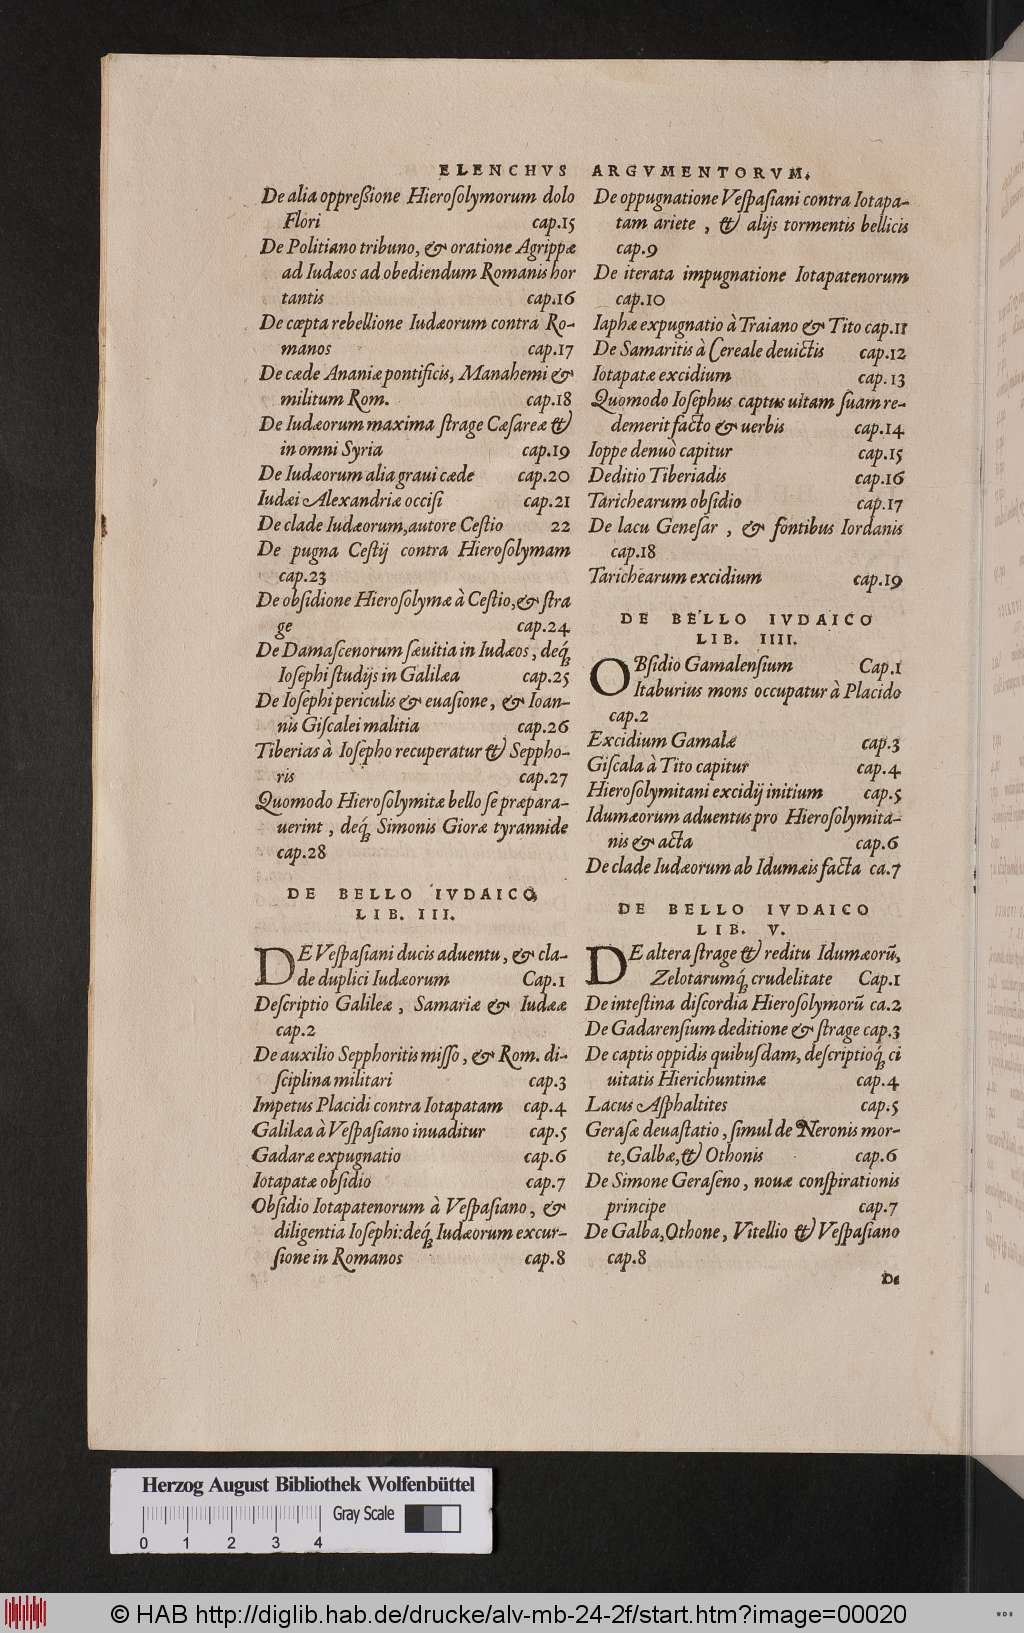 ELENCHVS ARGVMENTORVM.
De alia oppreßione Hieroſolymorum dolo
Flori cap.15
De Politiano tribuno, & oratione Agrippæ
ad Iudæos ad obediendum Romanis hor
tantis cap.16
De cœpta rebellione Iudæorum contra Ro-
manos cap.17
De cæde Ananiæ pontificis, Manahemi &
militum Rom. cap.18
De Iudæorum maxima ſtrage Cæſareæ &
in omni Syria cap.19
De Iudæorum alia graui cæde cap.20
Iudæi Alexandriæ occiſi cap.21
De clade Iudæorum, autore Ceſtio 22
De pugna Ceſtij contra Hieroſolymam
cap.23
De obſidione Hieroſolymæ à Ceſtio, & ſtra
ge cap.24
De Damaſcenorum ſæuitia in Iudæos, deq́;
Ioſephi ſtudijs in Galilæa cap.25
De Ioſephi periculis & euaſione, & Ioan-
nis Giſcalei malitia cap.26
Tiberias à Ioſepho recuperatur & Seppho-
ris cap.27
Quomodo Hieroſolymitæ bello ſe præpara-
uerint, deq́; Simonis Gioræ tyrannide
cap.28
DE BELLO IVDAICO,
LIB. III.
DE Veſpaſiani ducis aduentu, & cla-
de duplici Iudæorum Cap.1
Deſcriptio Galileæ, Samariæ & Iudææ
cap.2
De auxilio Sepphoritis miſſo, & Rom. di-
ſciplina militari cap.3
Impetus Placidi contra Iotapatam cap.4
Galilæa à Veſpaſiano inuaditur cap.5
Gadaræ expugnatio cap.6
Iotapatæ obſidio cap.7
Obſidio Iotapatenorum à Veſpaſiano, &
diligentia Ioſephi: deq́; Iudæorum excur-
ſione in Romanos cap.8
De oppugnatione Veſpaſiani contra Iotapa-
tam ariete, & alijs tormentis bellicis
cap.9
De iterata impugnatione Iotapatenorum
cap.10
Iaphæ expugnatio à Traiano & Tito cap.11
De Samaritis à Cereale deuictis cap.12
Iotapatæ excidium cap.13
Quomodo Ioſephus captus uitam ſuam re-
demerit facto & uerbis cap.14
Ioppe denuò capitur cap.15
Deditio Tiberiadis cap.16
Tarichearum obſidio cap.17
De lacu Geneſar, & fontibus Iordanis
cap.18
Tarichearum excidium cap.19
DE BELLO IVDAICO
LIB. IIII.
OBſidio Gamalenſium Cap.1
Itaburius mons occupatur à Placido
cap.2
Excidium Gamalæ cap.3
Giſcala à Tito capitur cap.4
Hieroſolymitani excidij initium cap.5
Idumæorum aduentus pro Hieroſolymita-
nis & acta cap.6
De clade Iudæorum ab Idumæis facta ca.7
DE BELLO IVDAICO
LIB. V.
DE altera ſtrage & reditu Idumæorū,
Zelotarumq́; crudelitate Cap.1
De inteſtina diſcordia Hieroſolymorū ca.2
De Gadarenſium deditione & ſtrage cap.3
De captis oppidis quibuſdam, deſcriptioq́; ci
uitatis Hierichuntinæ cap.4
Lacus Aſphaltites cap.5
Geraſæ deuaſtatio, ſimul de Neronis mor-
te, Galbæ, & Othonis cap.6
De Simone Geraſeno, nouæ conſpirationis
principe cap.7
De Galba, Othone, Vitellio & Veſpaſiano
cap.8
De
Herzog August Bibliothek Wolfenbüttel
Gray Scale
0 1 2 3 4
© HAB http://diglib.hab.de/drucke/alv-mb-24-2f/start.htm?image=00020